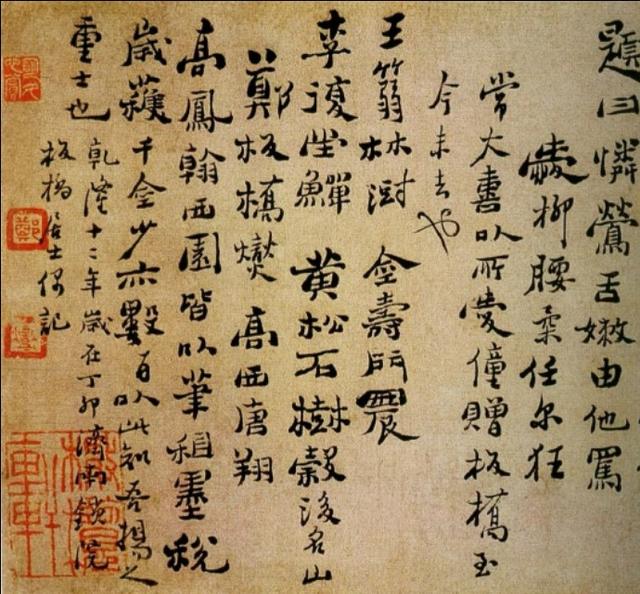 題曰憐鶯舌嫩由他罵
愛柳腰柔任尔狂
常大喜以所愛僮贈板橋至
今未去也
王篛林澍 金壽門農
李復堂鱓 黄松石樹穀後名山
鄭板橋燮 高西唐翔
高鳳翰西園皆以筆租墨税
歲獲千金少亦數百以此知吾揚之
重士也 乾隆十二年歲在丁卯濟南鎖院
板橋居士偶記
鄭
燮